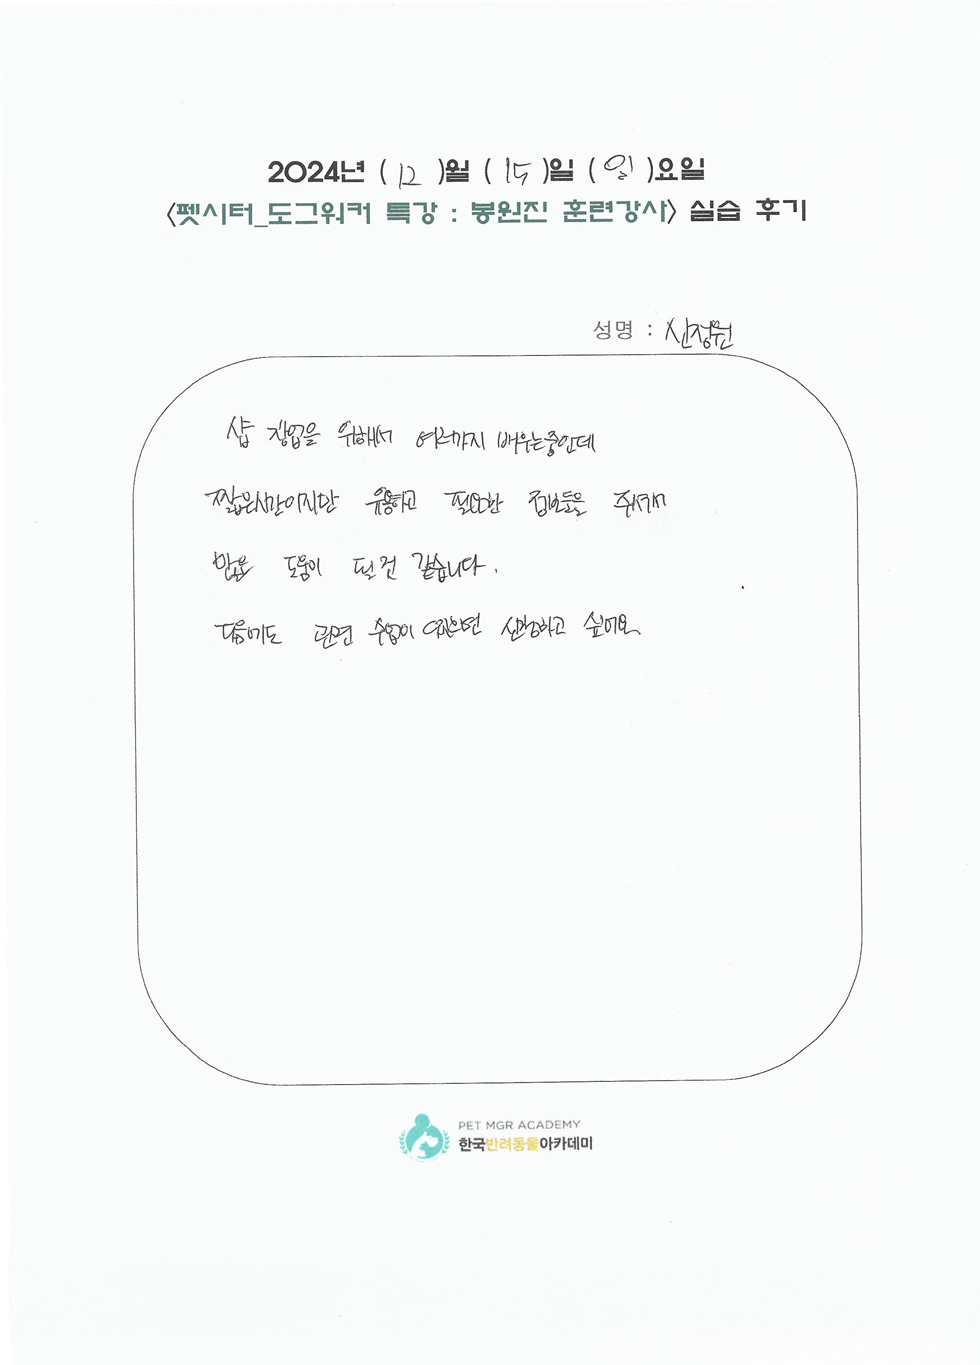 2024년 ( 12 )월 ( 15 )일 ( 일 )요일
<펫시터_도그워커 특강 : 봉원진 훈련강사> 실습 후기
성명 : 신정원
샵 창업을 위해서 여러가지 배우는중인데
짧은시간이지만 유용하고 필요한 정보들을 주셔서
많은 도움이 될 것 같습니다.
다음에도 관련 수업이 있으면 신청하고 싶어요
PET MGR ACADEMY
한국반려동물아카데미